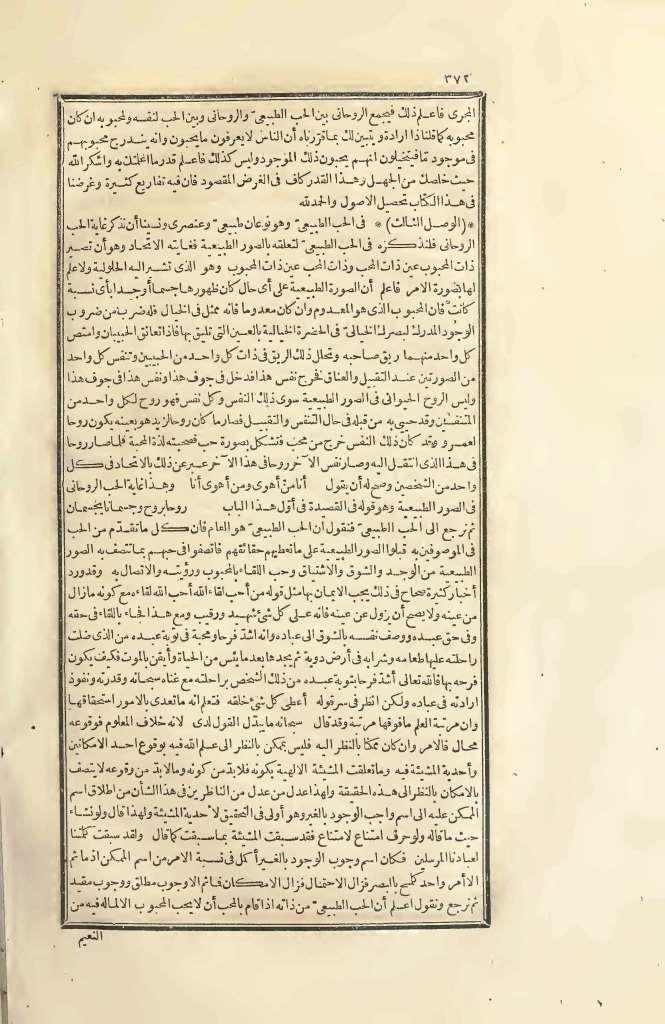 ٣٧٢
المجرى فاعلم ذلك فيجمع الروحانى بين الحب الطبيعىّ والروحانى وبين الحب لنفسه ولمحبوبه ان كان
محبوبه كما قلنا ذا ارادة ويتبين لك بما قررناه أن الناس لا يعرفون ما يحبون وانه يندرج محبوبهم
فى موجود ما فيتخيلون انهم يحبون ذلك الموجود وليس كذلك فاعلم قدر ما اعلمتك به واشكر الله
حيث خلصك من الجهل وهذا القدر كاف فى الغرض المقصود فان فيه تفاريع كثيرة وغرضنا
فى هذا الكتاب تحصيل الاصول والحمد لله
*(الوصل الثالث)* فى الحب الطبيعىّ وهو نوعان طبيعىّ وعنصرى ونسينا أن نذكر غاية الحب
الروحانى فلنذكره فى الحب الطبيعىّ لتعلقه بالصور الطبيعية فغايته الاتحاد وهو أن تصير
ذات المحبوب عين ذات المحب وذات المحب عين ذات المحبوب وهو الذى تشير اليه الحلولية ولا علم
لها بصورة الامر فاعلم أن الصورة الطبيعية على أى حال كان ظهورها جسما أو جسدا بأى نسبة
كانت فان المحبوب الذى هو المعدوم وان كان معدوما فانه ممثل فى الخيال فله ضرب من ضروب
الوجود المدرك لبصرك الخيالىّ فى الحضرة الخيالية بالعين التى تليق بها فاذا تعانق الحبيبان وامتص
كل واحد منهما ريق صاحبه وتحلل ذلك الريق فى ذات كل واحد من الحبيبين وتنفس كل واحد
من الصورتين عند التقبيل والعناق فخرج نفس هذا فدخل فى جوف هذا ونفس هذا فى جوف هذا
وليس الروح الحيوانى فى الصور الطبيعية سوى ذلك النفس وكل نفس فهو روح لكل واحد من
المتنفسين وقد حيى به من قبله فى حال التنفس والتقبيل فصار ما كان روحا لزيد هو بعينه يكون روحا
لعمرو وقد كان ذلك النفس خرج من محب فتشكل بصورة حب فصحبته لذة المحبة فلما صار روحا
فى هذا الذى انتقل اليه وصار نفس الآخر روحا فى هذا الآخر عبر عن ذلك بالاتحاد فى كل
واحد من الشخصين وصح له أن يقول أنا من أهوى ومن أهوى أنا وهذا غاية الحب الروحانى
فى الصور الطبيعية وهو قوله فى القصيدة فى أوّل هذا الباب روحا بروح وجسمانا بجسمان
ثم نرجع الى الحب الطبيعىّ فنقول أن الحب الطبيعىّ هو العام فان كل ما تقدّم من الحب
فى الموصوفين به قبلوا الصور الطبيعية على ما تعطيهم حقائقهم فاتصفوا فى حبهم بما تتصف به الصور
الطبيعية من الوجد والشوق والاشتياق وحب اللقاء بالمحبوب ورؤيته والاتصال به وقد ورد
أخبار كثيرة صحاح فى ذلك يجب الايمان بها مثل قوله من أحب لقاء الله أحب الله لقاءه مع كونه ما زال
من عينه ولا يصح أن يزول عن عينه فانه على كل شئ شهيد ورقيب ومع هذا جاء باللقاء فى حقه
وفى حق عبده ووصف نفسه بالشوق الى عباده وانه اشدّ فرحا ومحبة فى توبة عبده من الذى ضلت
راحلته عليها طعامه وشرابه فى أرض دوية ثم يجدها بعد ما يئس من الحياة وأيقن بالموت فكيف يكون
فرحه بها فالله تعالى أشدّ فرحا بتوبة عبده من ذلك الشخص براحلته مع غناه سبحانه وقدرته ونفوذ
ارادته فى عباده ولكن انظر فى سرّ قوله أعطى كل شئ خلقه فتعلم انه ما تعدى بالامور استحقاقها
وان مرتبة العلم ما فوقها مرتبة وقد قال سبحانه ما يبدّل القول لدى لانه خلاف المعلوم فوقوعه
محال فالامر وان كان ممكنا بالنظر اليه فليس بممكن بالنظر الى علم الله فيه بوقوع احد الامكانين
وأحدية المشيئة فيه وما تعلقت المشيئة الالهية بكونه فلا بدّ من كونه وما لا بدّ من وقوعه لا يتصف
بالامكان بالنظر الى هذه الحقيقة ولهذا عدل من عدل من الناظرين فى هذا الشأن من اطلاق اسم
الممكن عليه الى اسم واجب الوجود بالغير وهو أولى فى التحقيق لاحدية المشيئة ولهذا قال ولو نشاء
حيث ما قاله ولو حرف امتناع لامتناع فقد سبقت المشيئة بما سبقت كما قال ولقد سبقت كلمتنا
لعبادنا المرسلين فكان اسم وجوب الوجود بالغير أكمل فى نسبة الامر من اسم الممكن اذ ما ثم
الا أمر واحد كلمح بالبصر فزال الاحتمال فزال الامكان فما ثم الا وجوب مطلق ووجوب مقيد
ثم نرجع ونقول اعلم أن الحب الطبيعىّ من ذاته اذا قام بالمحب أن لا يحب المحبوب الا لما له فيه من
النعيم